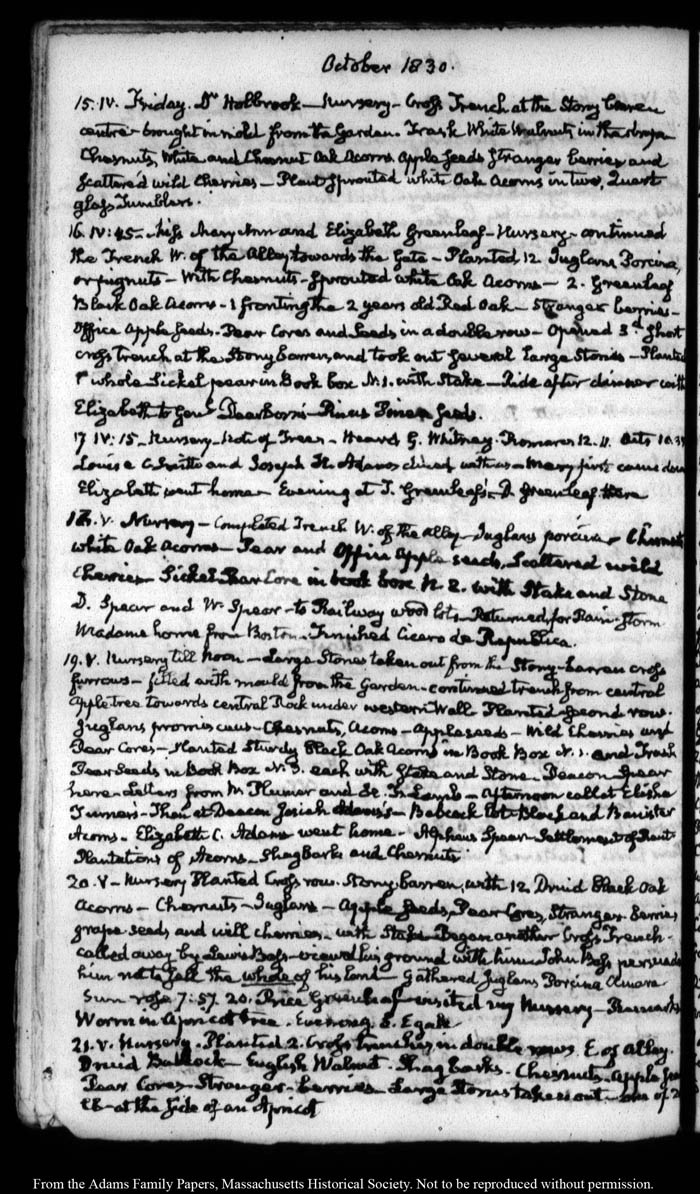 October 1830.
15. IV. Friday. Dr Holbrook — Nursery — Cross Trench at the Stony barren
centre — brought in mold from the Garden. Trask White Walnuts in the
Chesnuts, White and Chesnut Oak Acorns, Apple seeds Stranger berries and
scattered wild Cherries — Plant sprouted white Oak Acorns in two, Quart
glass Tumblers.
16. IV: 45 — Miss Mary Ann and Elizabeth Greenleaf — Nursery — continued
the Trench W. of the Alley towards the Gate — Planted 12 Juglans Porcina,
or pignuts — With Chesnuts — sprouted white Oak Acorns — 2. Greenleaf
Black Oak Acorns — 1 fronting the 2 years old Red Oak — Stranger berries —
Office Apple seeds. Pear Cores and Seeds in a double row — Opened 3d short
cross trench at the Stony Barren, and took out several large Stones — Planted
1 whole Sickel pear in Book box N. 1. with Stake — Ride after dinner with
Elizabeth to Genl Dearborn's — Pinus Pinea seeds.
17 IV: 15 — Nursery — Note of Trees — Heard G. Whitney. Romans 12. 11. Acts 10. 34
Louisa C. Smith and Joseph H. Adams dined with us — Mary first came down
Elizabeth went home — Evening at T. Greenleaf's. D. Greenleaf there
18. V. Nursery — Completed Trench W. of the alley — Juglans porcina — Chesnuts
white Oak Acorns — Pear and Office Apple seeds, Scattered wild
Cherries — Sickel Pear Core in book box N. 2. with Stake and Stone
D. Spear and W. Spear — to Railway wood lots — Returned for Rain-storm
Madame home from Boston. Finished Cicero de Republica.
19. V. Nursery till noon — Large Stones taken out from the Stony-barren cross
furrows — filled with mould from the Garden — continued trench from central
Apple tree towards central Rock under western Wall Planted second row.
Juglans promiscuous — Chesnuts, Acorns — Apple seeds — Wild Cherries and
Pear Cores — Planted Sturdy Black Oak Acorns in Book Box N. 1. and Trask
Pear Seeds in Book Box N. 3. each with Stake and Stone — Deacon Spear
here — Letters from M Plumer and Lamb — Afternoon call at Elisha
Turner's — Then at Deacon Josiah Adams's — Babcock lot — Black and Banister
Acorns — Elizabeth C. Adams went home — Alpheus Spear — Settlement of Rent
Plantations of Acorns — Shagbarks and Chesnuts
20. V — Nursery Planted Cross row. Stony barren, with 12 Druid Black Oak
Acorns — Chesnuts — Juglans — Apple seeds, Pear Cores, Stranger-berries
grape seeds and wild cherries — with Stake — Began another Cross Trench —
called away by Lewis Bass — viewed his ground with him — John Bass persuade
him not to sell the whole of his land — Gathered Juglans Porcina
Sun rose 7:57. 20. Price Greenleaf visited my Nursery — Remarks
Worm in Apricot tree. Evening
21. V. Nursery. Planted 2. Cross trenches in double rows E. of Alley.
Druid Babcock — English Walnut. Shagbarks. Chesnuts — Apple seeds
Pear Cores — Stranger-berries — Large Stones taken out — one of 2
at the side of an Apricot
From the Adams Family Papers, Massachusetts Historical Society. Not to be reproduced without permission.